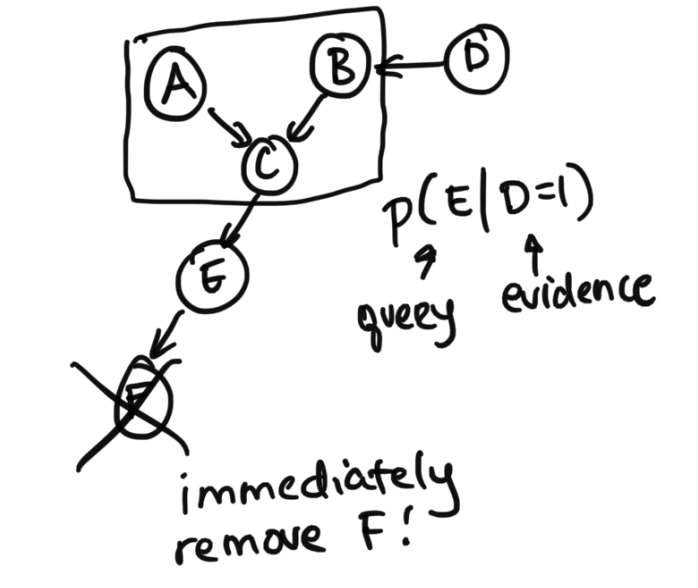 A
B
D
C
p(E|D=1)
E
queey
evidence
F
immediately
remove F!